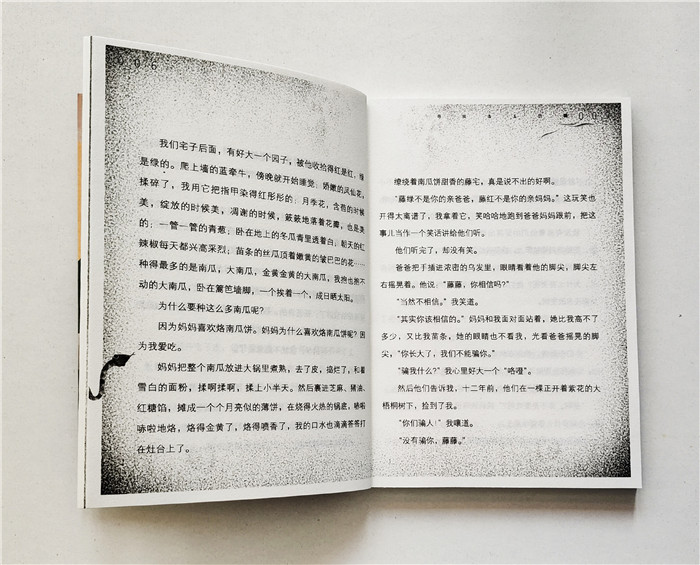 06
我们宅子后面，有好大一个园子，被他收拾得红是红，绿
是绿的。爬上墙的蓝牵牛，傍晚就开始睡觉；娇嫩的凤仙花，
揉碎了，我用它把指甲染得红彤彤的；月季花，含苞的时候
美，绽放的时候美，凋谢的时候，簌簌地落着花瓣，也是美
的；一管一管的青葱；卧在地上的冬瓜青里透着白；朝天的红
辣椒每天都兴高采烈；苗条的丝瓜顶着嫩黄的皱巴巴的花……
种得最多的是南瓜，大南瓜，金黄金黄的大南瓜，我抱也抱不
动的大南瓜，卧在篱笆墙脚，一个挨着一个，成日晒太阳。
为什么要种这么多南瓜呢？
因为妈妈喜欢烙南瓜饼。妈妈为什么喜欢烙南瓜饼呢？因
为我爱吃。
妈妈把整个南瓜放进大锅里煮熟，去了皮，捣烂了，和着
雪白的面粉，揉啊揉啊，揉上小半天。然后裹进芝麻、猪油、
红糖馅，摊成一个个月亮似的薄饼，在烧得火热的锅底，哧啦
哧啦地烙，烙得金黄了，烙得喷香了，我的口水也滴滴答答打
在灶台上了。
缭绕着南瓜饼甜香的藤宅，真是说不出的好啊。
“藤绿不是你的亲爸爸，藤红不是你的亲妈妈。”这玩笑也
开得太离谱了，我拿着它，笑哈哈地跑到爸爸妈妈跟前，把这
事儿当作一个笑话讲给他们听。
他们听完了，却没有笑。
爸爸把手插进浓密的乌发里，眼睛看着他的脚尖，脚尖左
右摇晃着。他说：“藤藤，你相信吗？”
“当然不相信。”我笑道。
“其实你该相信的。”妈妈和我面对面站着，她比我高不了
多少，又比我苗条，她的眼睛也不看我，光看爸爸摇晃的脚
尖，“你长大了，我们不能骗你。”
“骗我什么？”我心里好大一个“咯噔”。
然后他们告诉我，十二年前，他们在一棵正开着紫花的大
梧桐树下，捡到了我。
“你们骗人！”我嚷道。
“没有骗你，藤藤。”